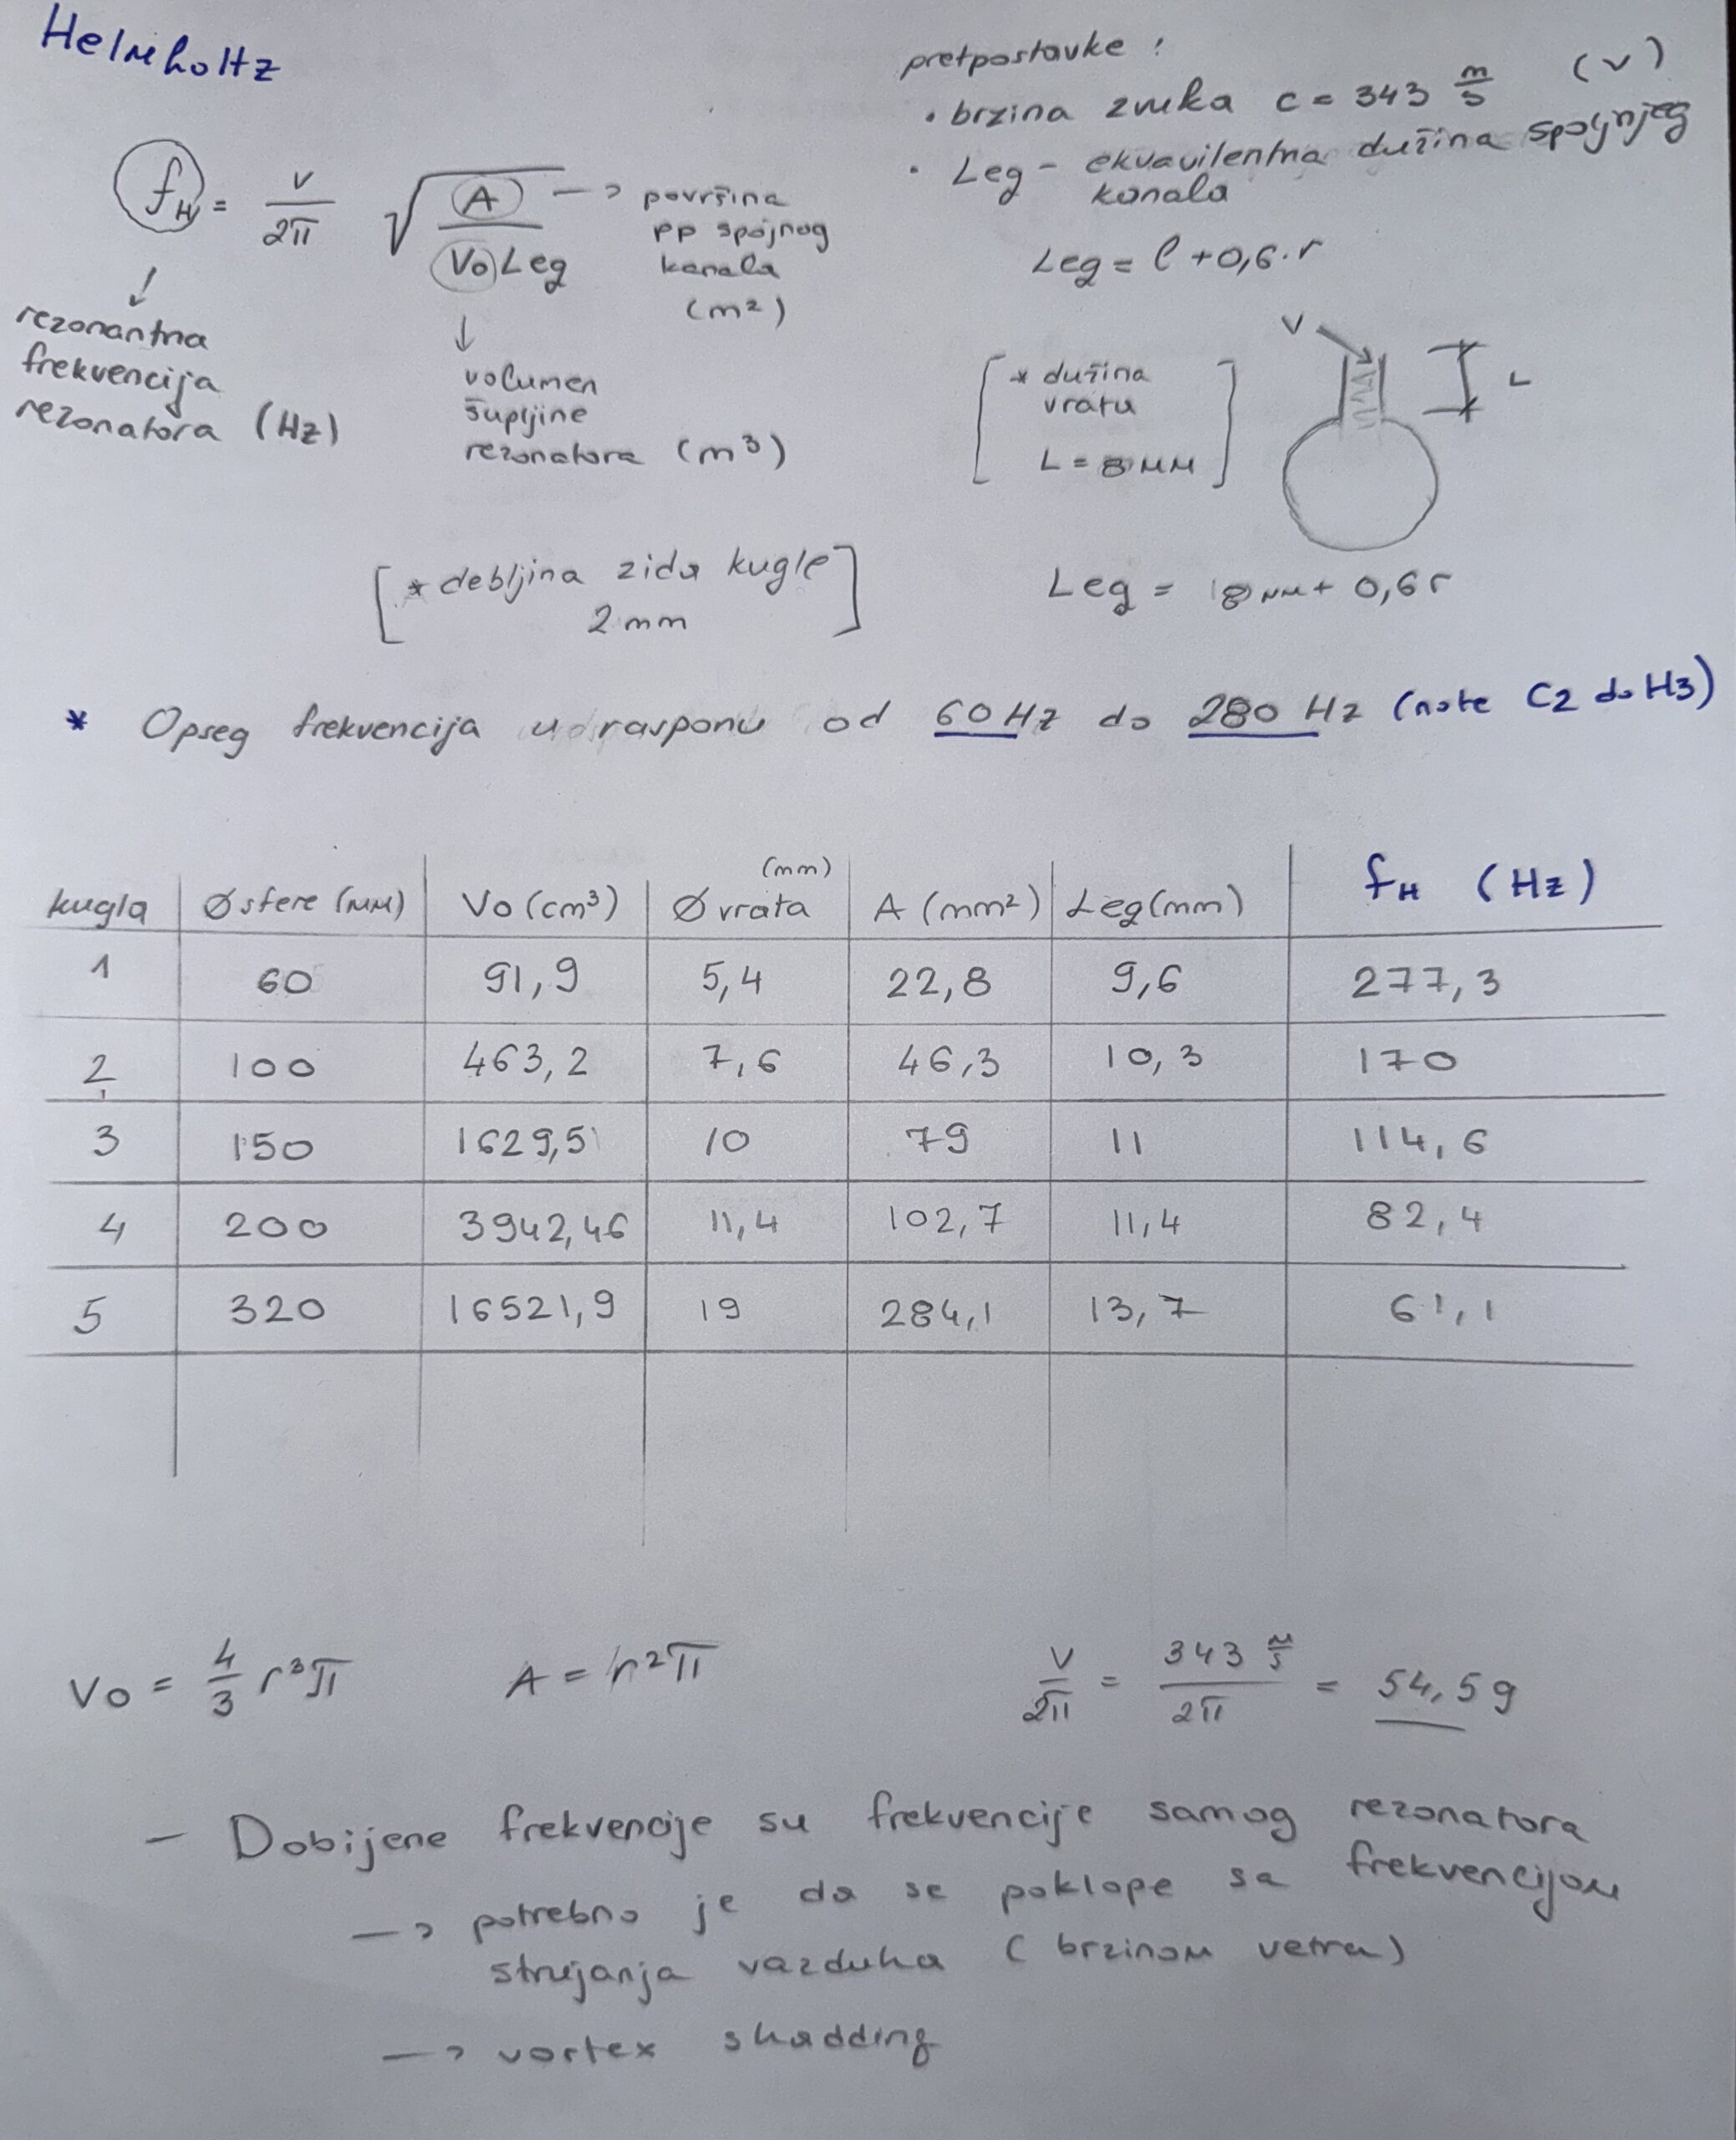 Helmholtz
pretpostavke :
• brzina zvuka c = 343 m/s (v)
• Leg - ekvavilentna dužina spoljnjeg
kanala
fH = v/2π √(A/(Vo Leg)) → površina
pp spojnog
kanala
(m²)
Leg = l + 0,6 · r
↓
rezonantna
frekvencija
rezonatora (Hz)
↓
volumen
šupljine
rezonatora (m³)
[* dužina
vrata
L = 8 mm]
V
L
[* debljina zida kugle
2 mm]
Leg = 8 mm + 0,6 r
* Opseg frekvencija u rasponu od 60 Hz do 280 Hz (note C2 do H3)
kugla | Ø sfere (mm) | Vo (cm³) | Ø vrata (mm) | A (mm²) | Leg (mm) | fH (Hz)
1 | 60 | 91,9 | 5,4 | 22,8 | 9,6 | 277,3
2 | 100 | 463,2 | 7,6 | 46,3 | 10,3 | 170
3 | 150 | 1629,5 | 10 | 79 | 11 | 114,6
4 | 200 | 3942,46 | 11,4 | 102,7 | 11,4 | 82,4
5 | 320 | 16521,9 | 19 | 284,1 | 13,7 | 61,1
Vo = 4/3 r³π A = r²π v/2π = 343 m/s / 2π = 54,59
- Dobijene frekvencije su frekvencije samog rezonatora
→ potrebno je da se poklope sa frekvencijom
strujanja vazduha (brzinom vetra)
→ vortex shadding